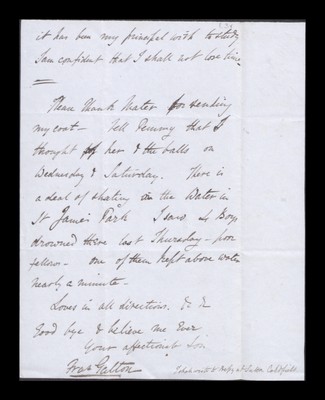 it has been my principal wish to study
I am confident that I shall not lose time
Please thank Mater for sending
my coat – Tell Pemmy that I
thought of her & the balls on
Wednesday & Saturday. There is
a deal of skating on the Water in
St James Park I saw 4 Boys
drowned there last Thursday – poor
fellows – one of them kept above water
nearly a minute –
Loves in all directions. &c &c
Good bye & believe me Ever
Your affectionate Son
Fras Galton